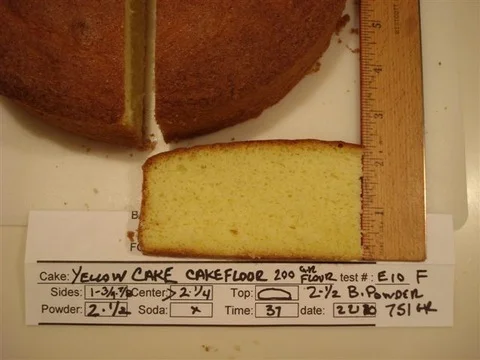 5
4
3
2
1
B
FO
Cake: YELLOW CAKE CAKE FLOOR 200 GR FLOUR test #: E10 F
Sides: 1-3/4-7/8 Center: > 2-1/4 Top: 2-1/2 B. POWDER
Powder: 2-1/2 Soda: x Time: 37 date: 751 GR